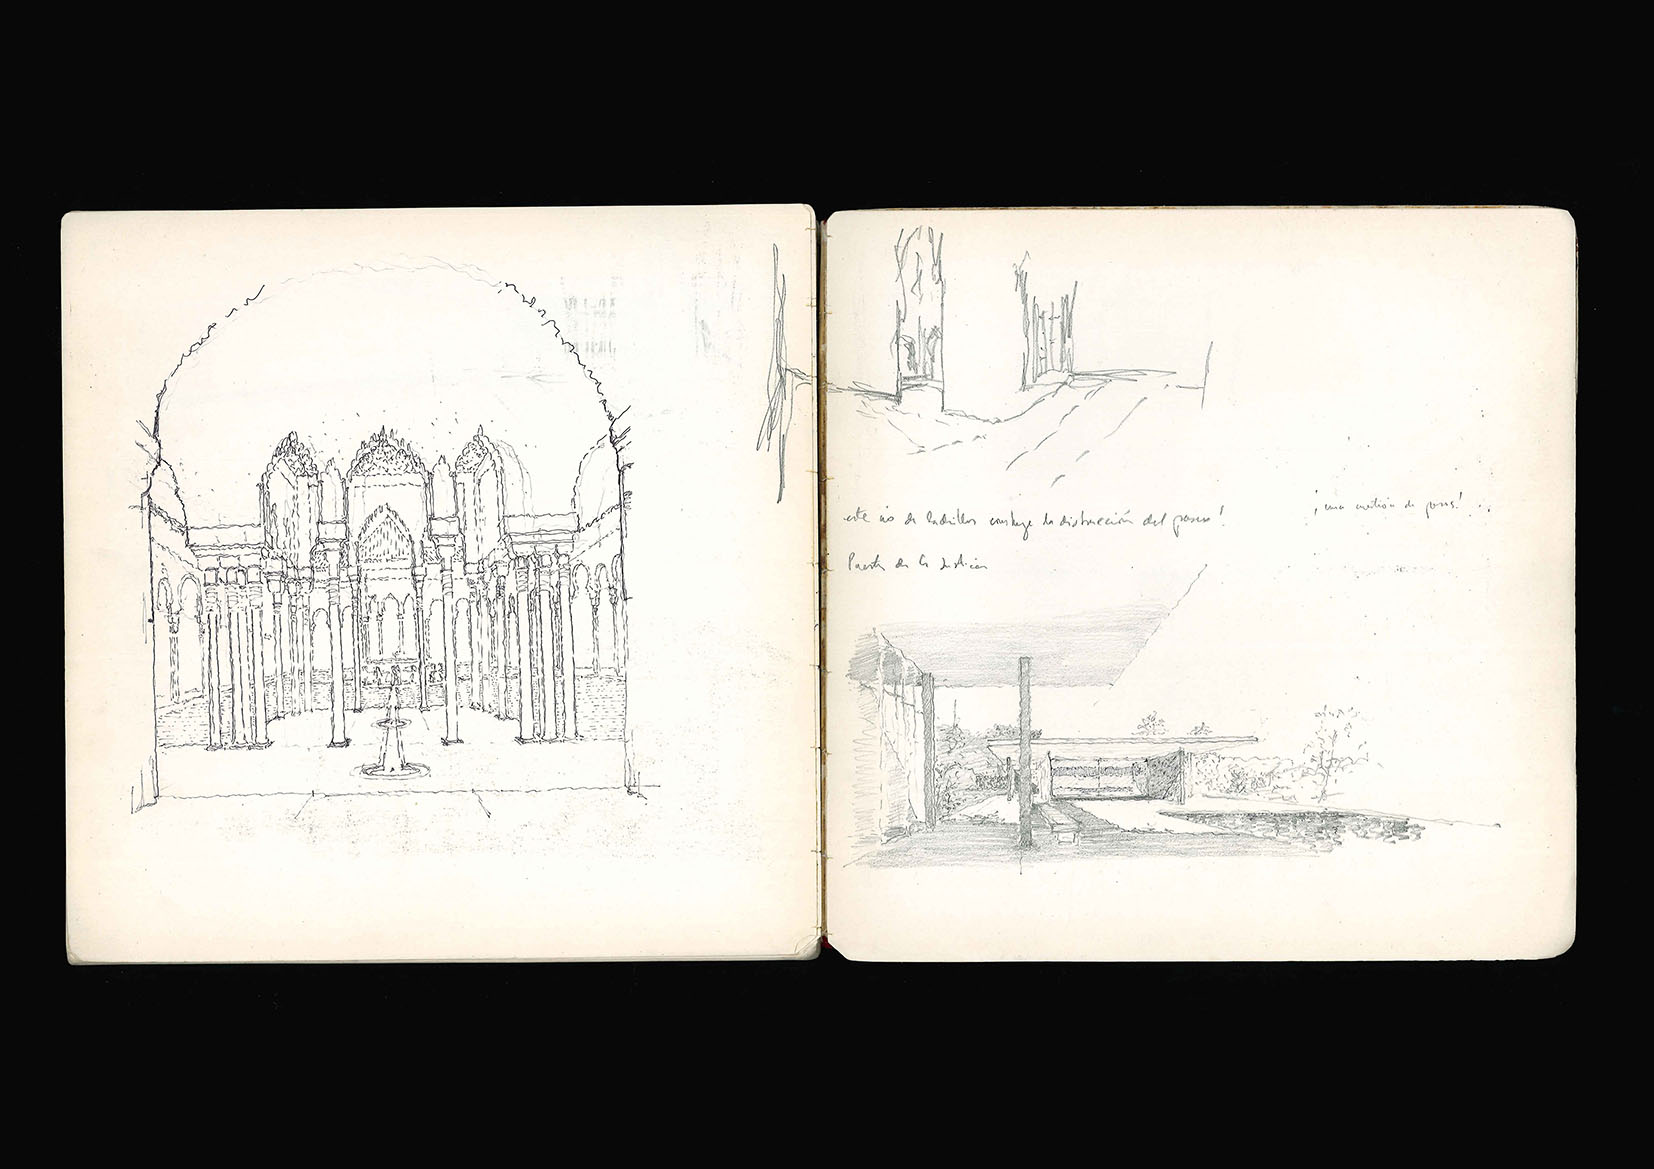 este río de ladrillos construye la distracción del paseo!
¡una cuestión de pasos!
Puerta de la Justicia